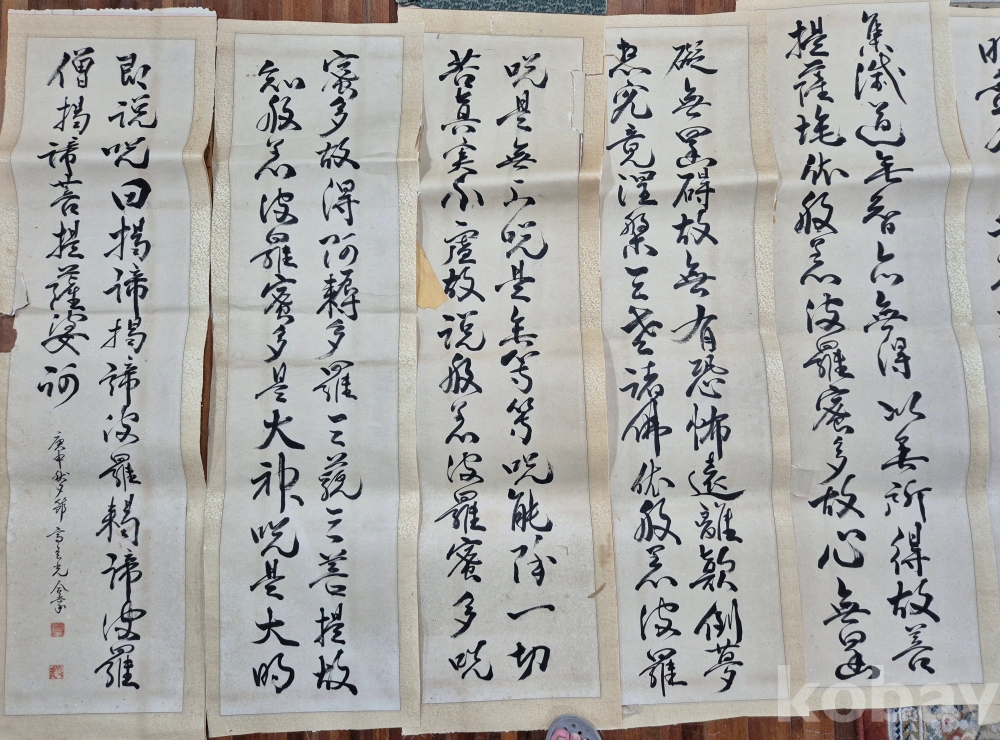 集滅道無智亦無得以無所得故菩
提薩埵依般若波羅蜜多故心無罣
礙無罣碍故無有恐怖遠離顛倒夢
想究竟涅槃三世諸佛依般若波羅
蜜多故得阿耨多羅三藐三菩提故
知般若波羅蜜多是大神呪是大明
呪是無上呪是無等等呪能除一切
苦眞実不虛故説般若波羅蜜多呪
即説呪曰揭諦揭諦波羅揭諦波羅
僧揭諦菩提薩婆訶
庚申秋夕節
kobay